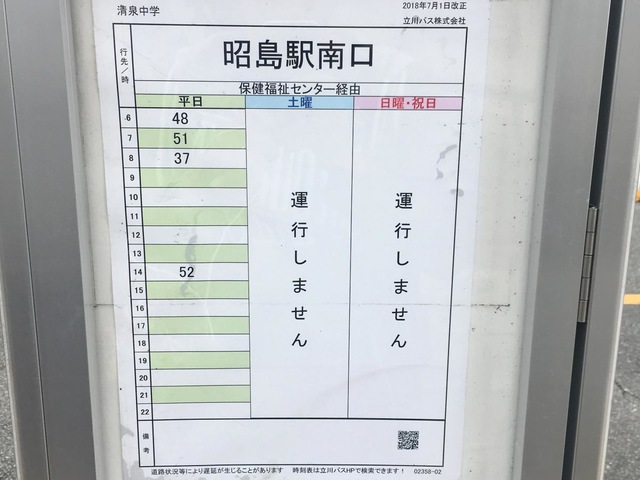 清泉中学
2018年7月1日改正
立川バス株式会社
行先/時
昭島駅南口
保健福祉センター経由
平日 土曜 日曜・祝日
6 48
7 51
8 37
9
10
11
12
13
14 52
15
16
17
18
19
20
21
22
運行しません
運行しません
備考
道路状況等により遅延が生じることがあります 時刻表は立川バスHPで検索できます! 02358-02